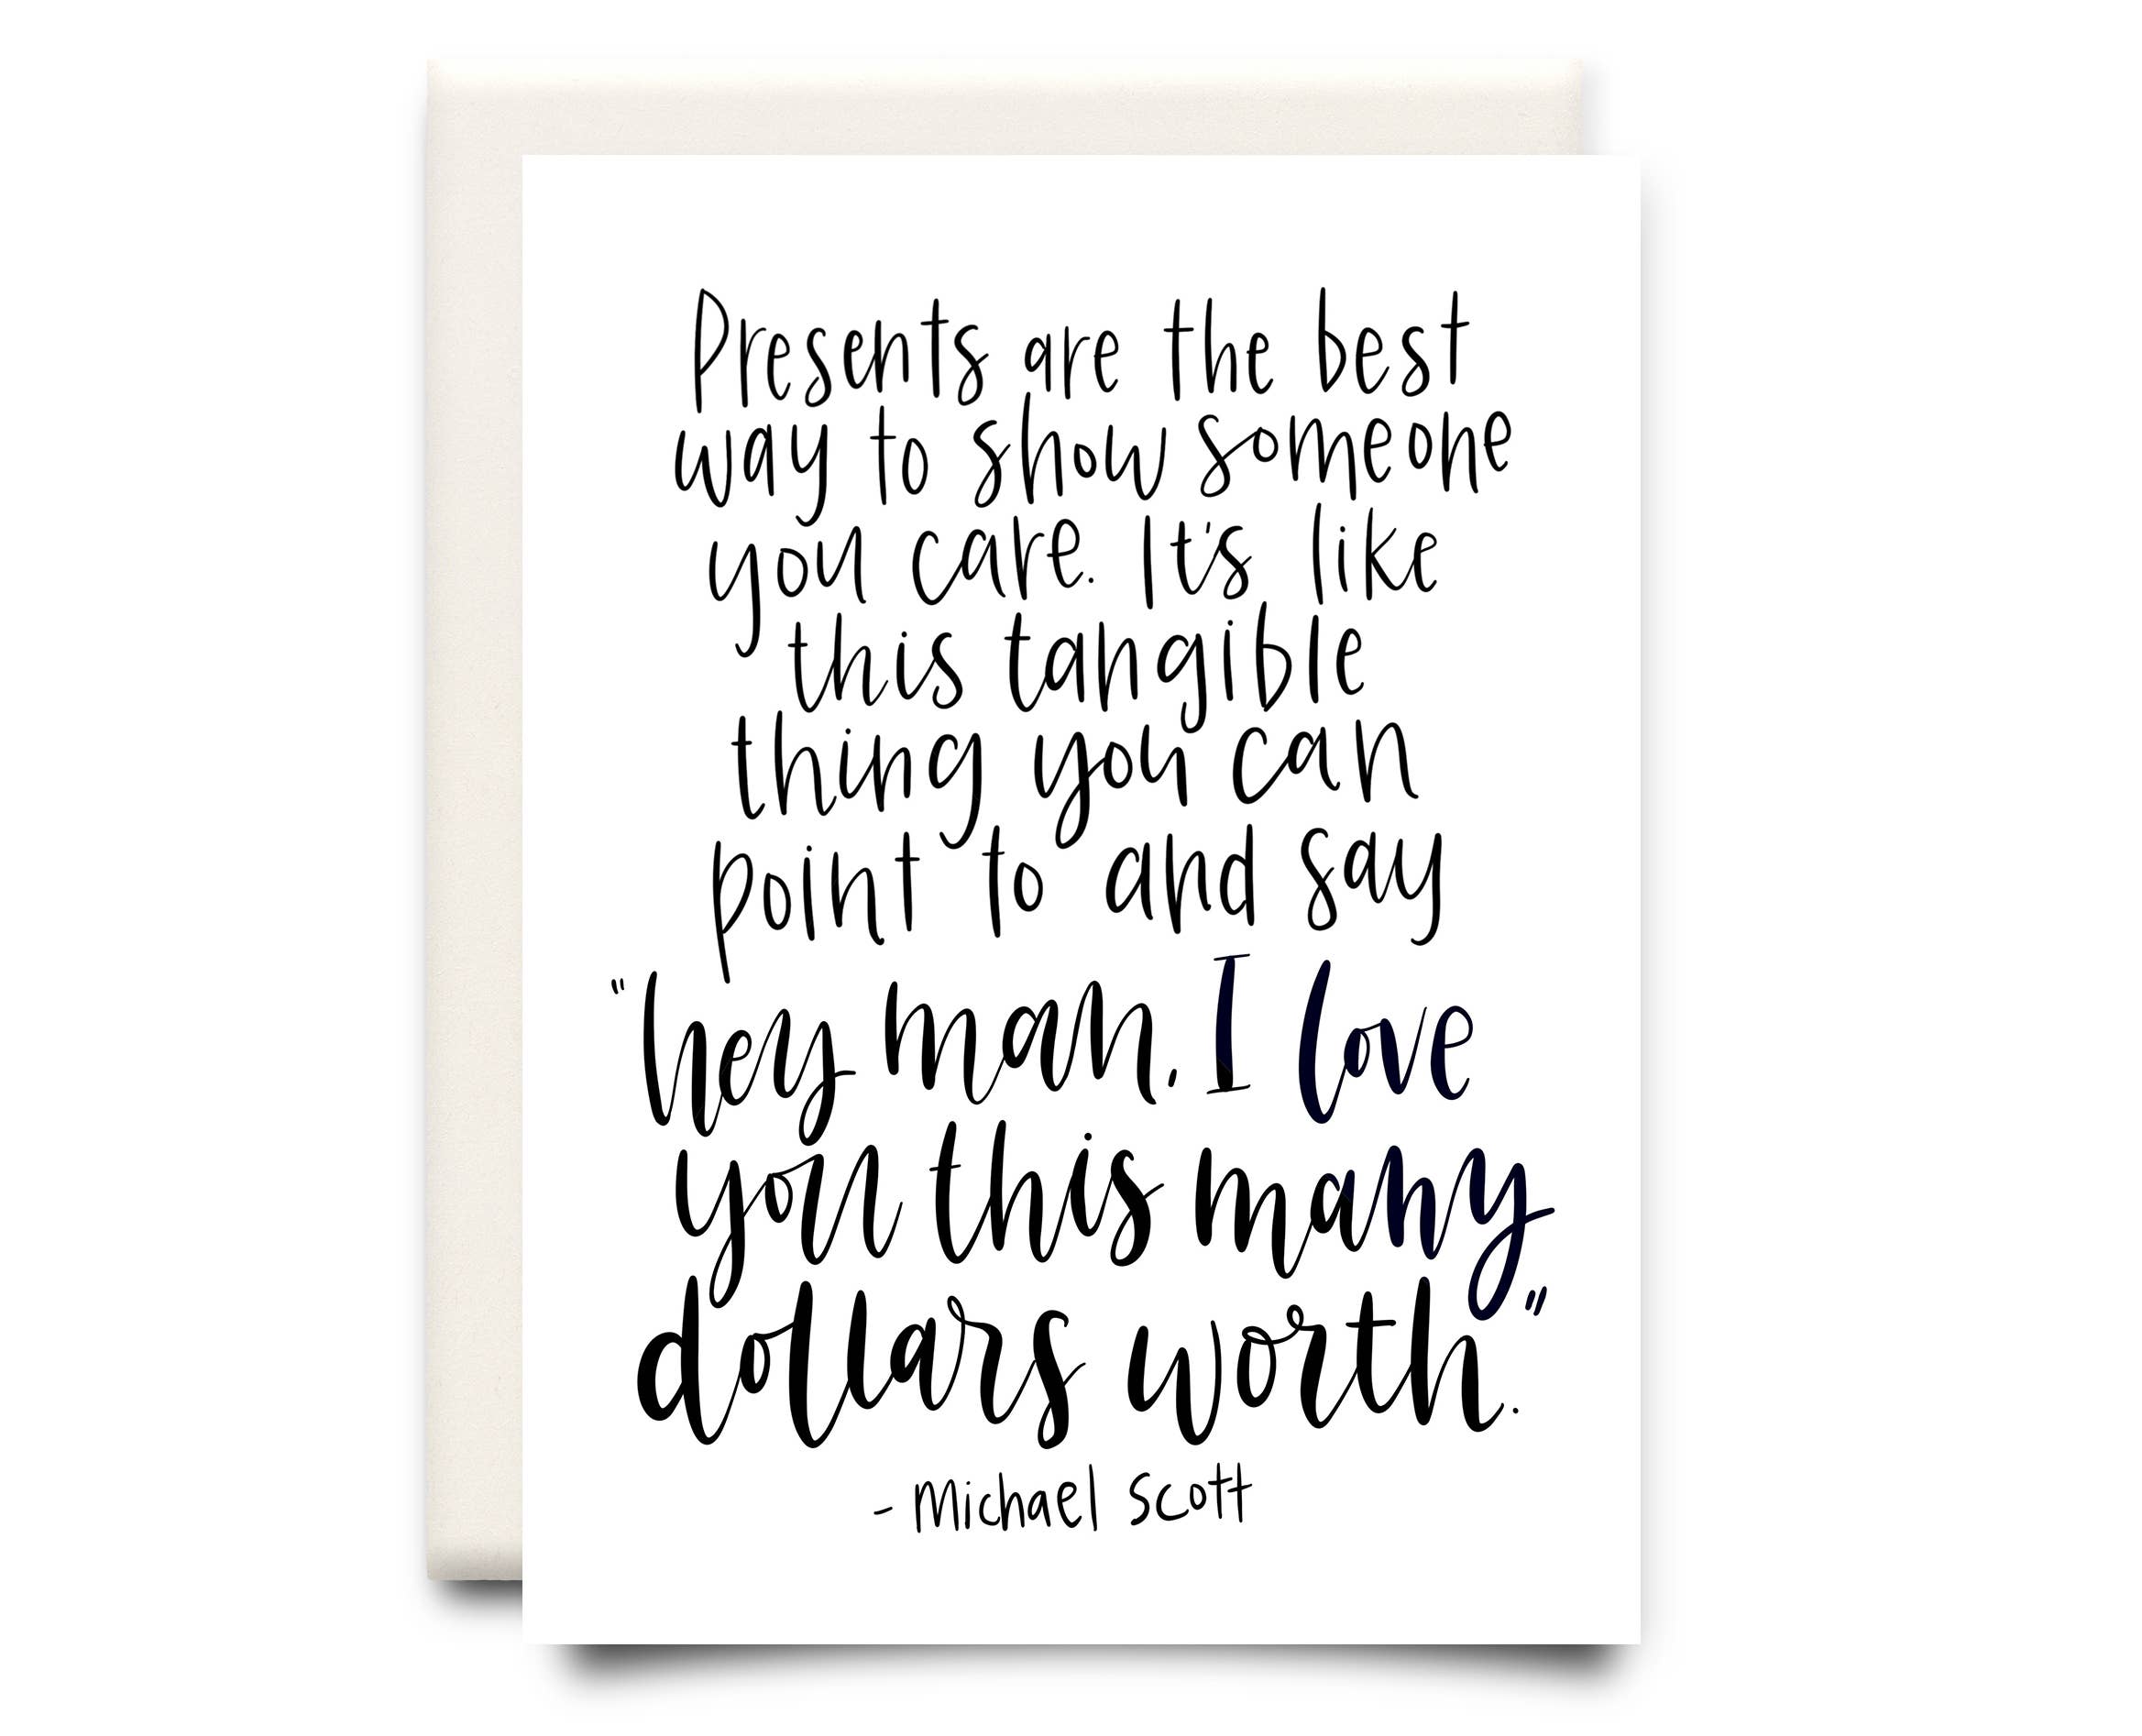 Presents are the best
way to show someone
you care. It's like
this tangible
thing you can
point to and say
"hey man, I love
you this many
dollars worth."
- Michael Scott